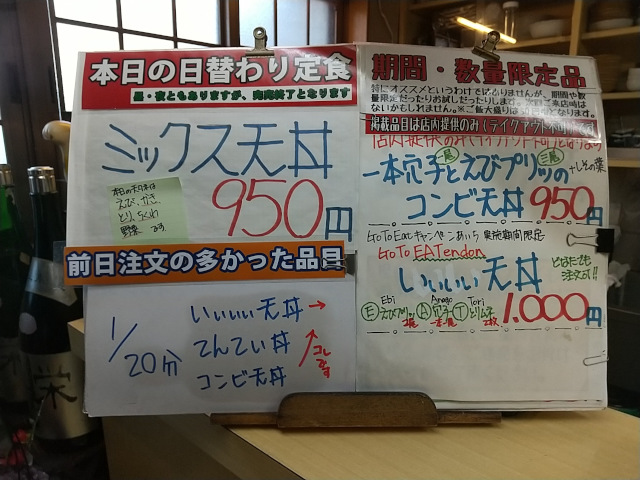 本日の日替わり定食
昼・夜ともありますが、完売終了となります
ミックス天丼
本日のミックスは
えび、かき
とり、ちくわ
野菜 です。
950円
前日注文の多かった品目
1/20分
いぃぃぃ天丼→
てんてぃ丼
コンビ天丼
コレです
期間・数量限定品
特にオススメというわけではありませんが、期間や数
量限定だったりお試しだったりします。次回ご来店時は
ないかもしれません。※ご飯大盛りは
掲載品目は店内提供のみ(テイクアウト不可)
一本穴子とえびプリッの
一尾
三尾
+しその葉
コンビ天丼 950円
Go To Eatキャンペーンあいち 実施期間限定
Go To EATendon
いぃぃぃ天丼
どなたでも
注文可!!
Ebi Anago Tori
Ⓔえびプリッ Ⓐ穴子 Ⓣとりムネ
2尾 一本 2枚
1.000円
栄